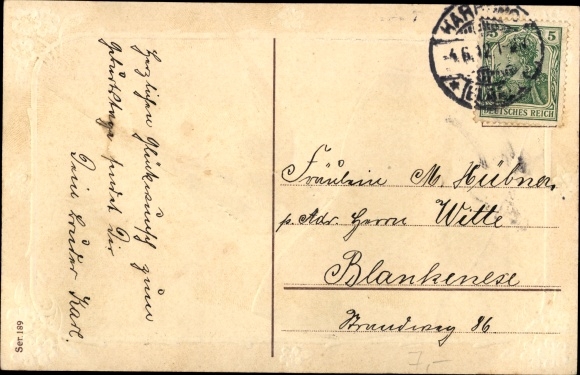 Herzlichen Glückwunsch zum
Geburtstage sendet Dir
Dein Bruder Karl.
HARBURG
4.6.12.
(ELBE)
5 5
DEUTSCHES REICH
Fräulein M. Hübner,
p. Adr. Herrn Witte
Blankenese
Strandweg 86.
7,-
Ser. 189